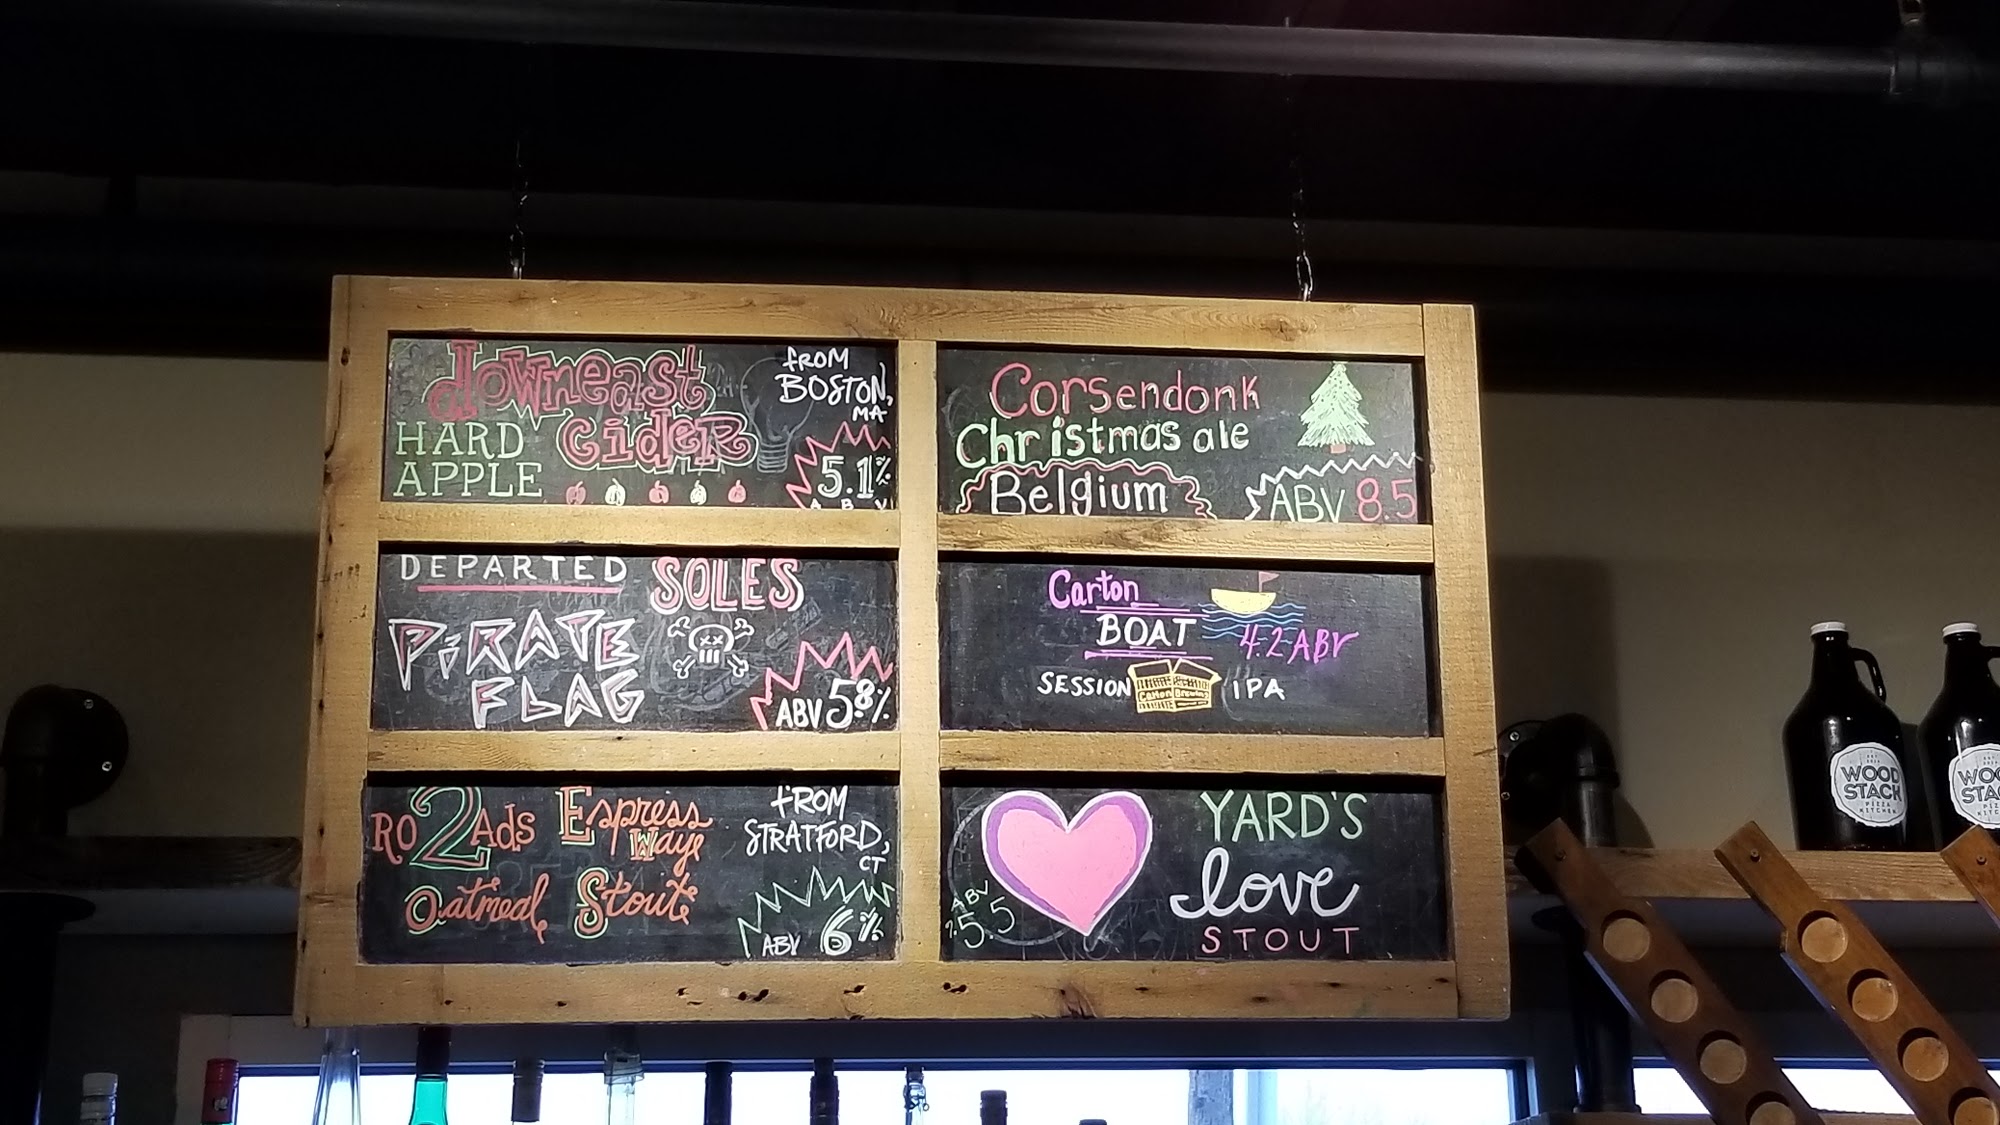 downeast
cider
HARD
APPLE
from
BOSTON,
MA
5.1%
A B V
Corsendonk
Christmas ale
Belgium
ABV 8.5
DEPARTED SOLES
PiRATE
FLAG
ABV 5.8%
Carton
BOAT
4.2 ABV
SESSION IPA
Carton Brewing
RO2Ads Espress
Waye
Oatmeal Stout
from
STRATFORD,
CT
ABV 6%
YARD'S
love
STOUT
ABV
5.5
WOOD
STACK
PIZZA
KITCHEN
WOO
STA